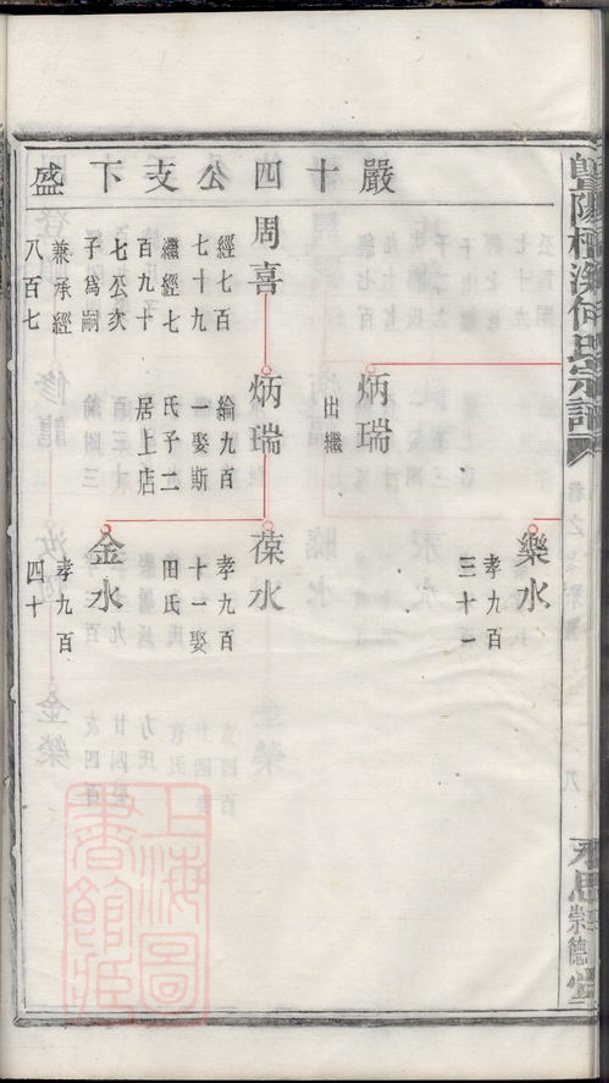 嚴十四公支下盛
樂水
孝九百
三十一
炳瑞
出繼
周喜
經七百
七十九
繼經七
百九十
七公次
子爲嗣
兼承經
八百七
炳瑞
綸九百
一娶斯
氏子二
居上店
葆水
孝九百
十一娶
田氏
金水
孝九百
四十
上海圖
書館藏